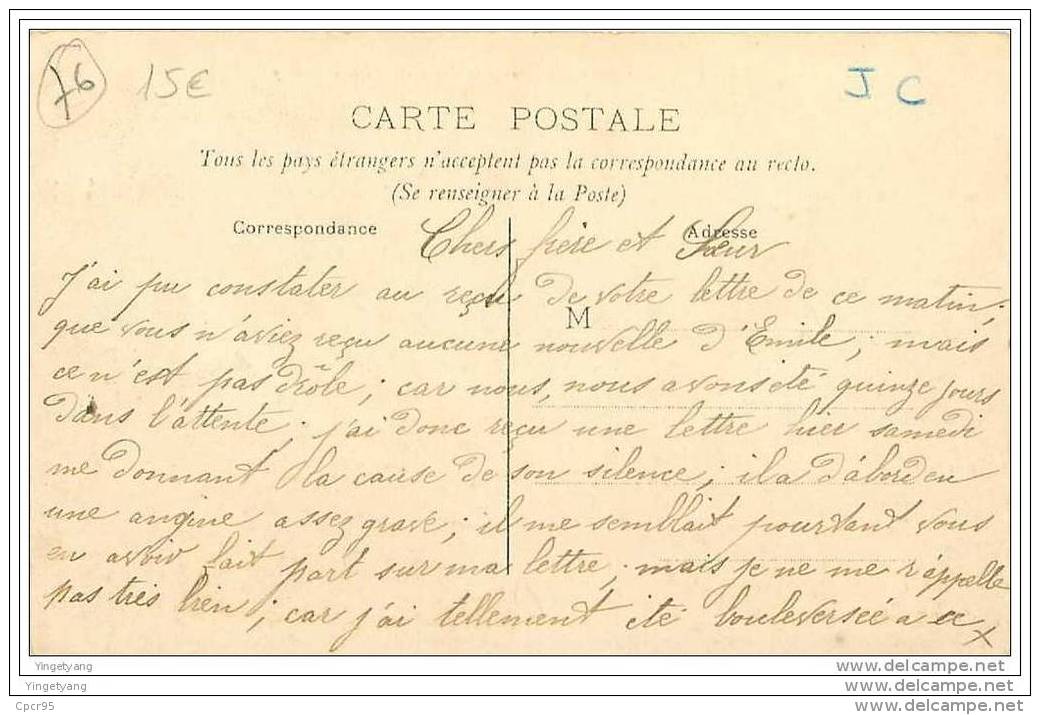 76 15€ J C
CARTE POSTALE
Tous les pays étrangers n'acceptent pas la correspondance au recto.
(Se renseigner à la Poste)
Correspondance Adresse
Chers frère et Sœur
J'ai pu constater au reçu de votre lettre de ce matin;
M
que vous n'aviez reçu aucune nouvelle d'Emile; mais
ce n'est pas drôle; car nous, nous avons été quinze jours
dans l'attente; j'ai donc reçu une lettre hier samedi
me donnant la cause de son silence; il a d'abord eu
une angine assez grave; il me semblait pourtant vous
en avoir fait part sur ma lettre; mais je ne me rappelle
pas très bien; car j'ai tellement été bouleversée a ce x
Yingetyang www.delcampe.net
Yingetyang www.delcampe.net
Cpcr95 www.delcampe.net